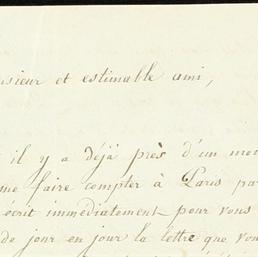 nsieur et estimable ami,
il y a déjà près d'un mo
me faire compter à Paris pa
écrit immédiatement pour vous
de jour en jour la lettre que vou